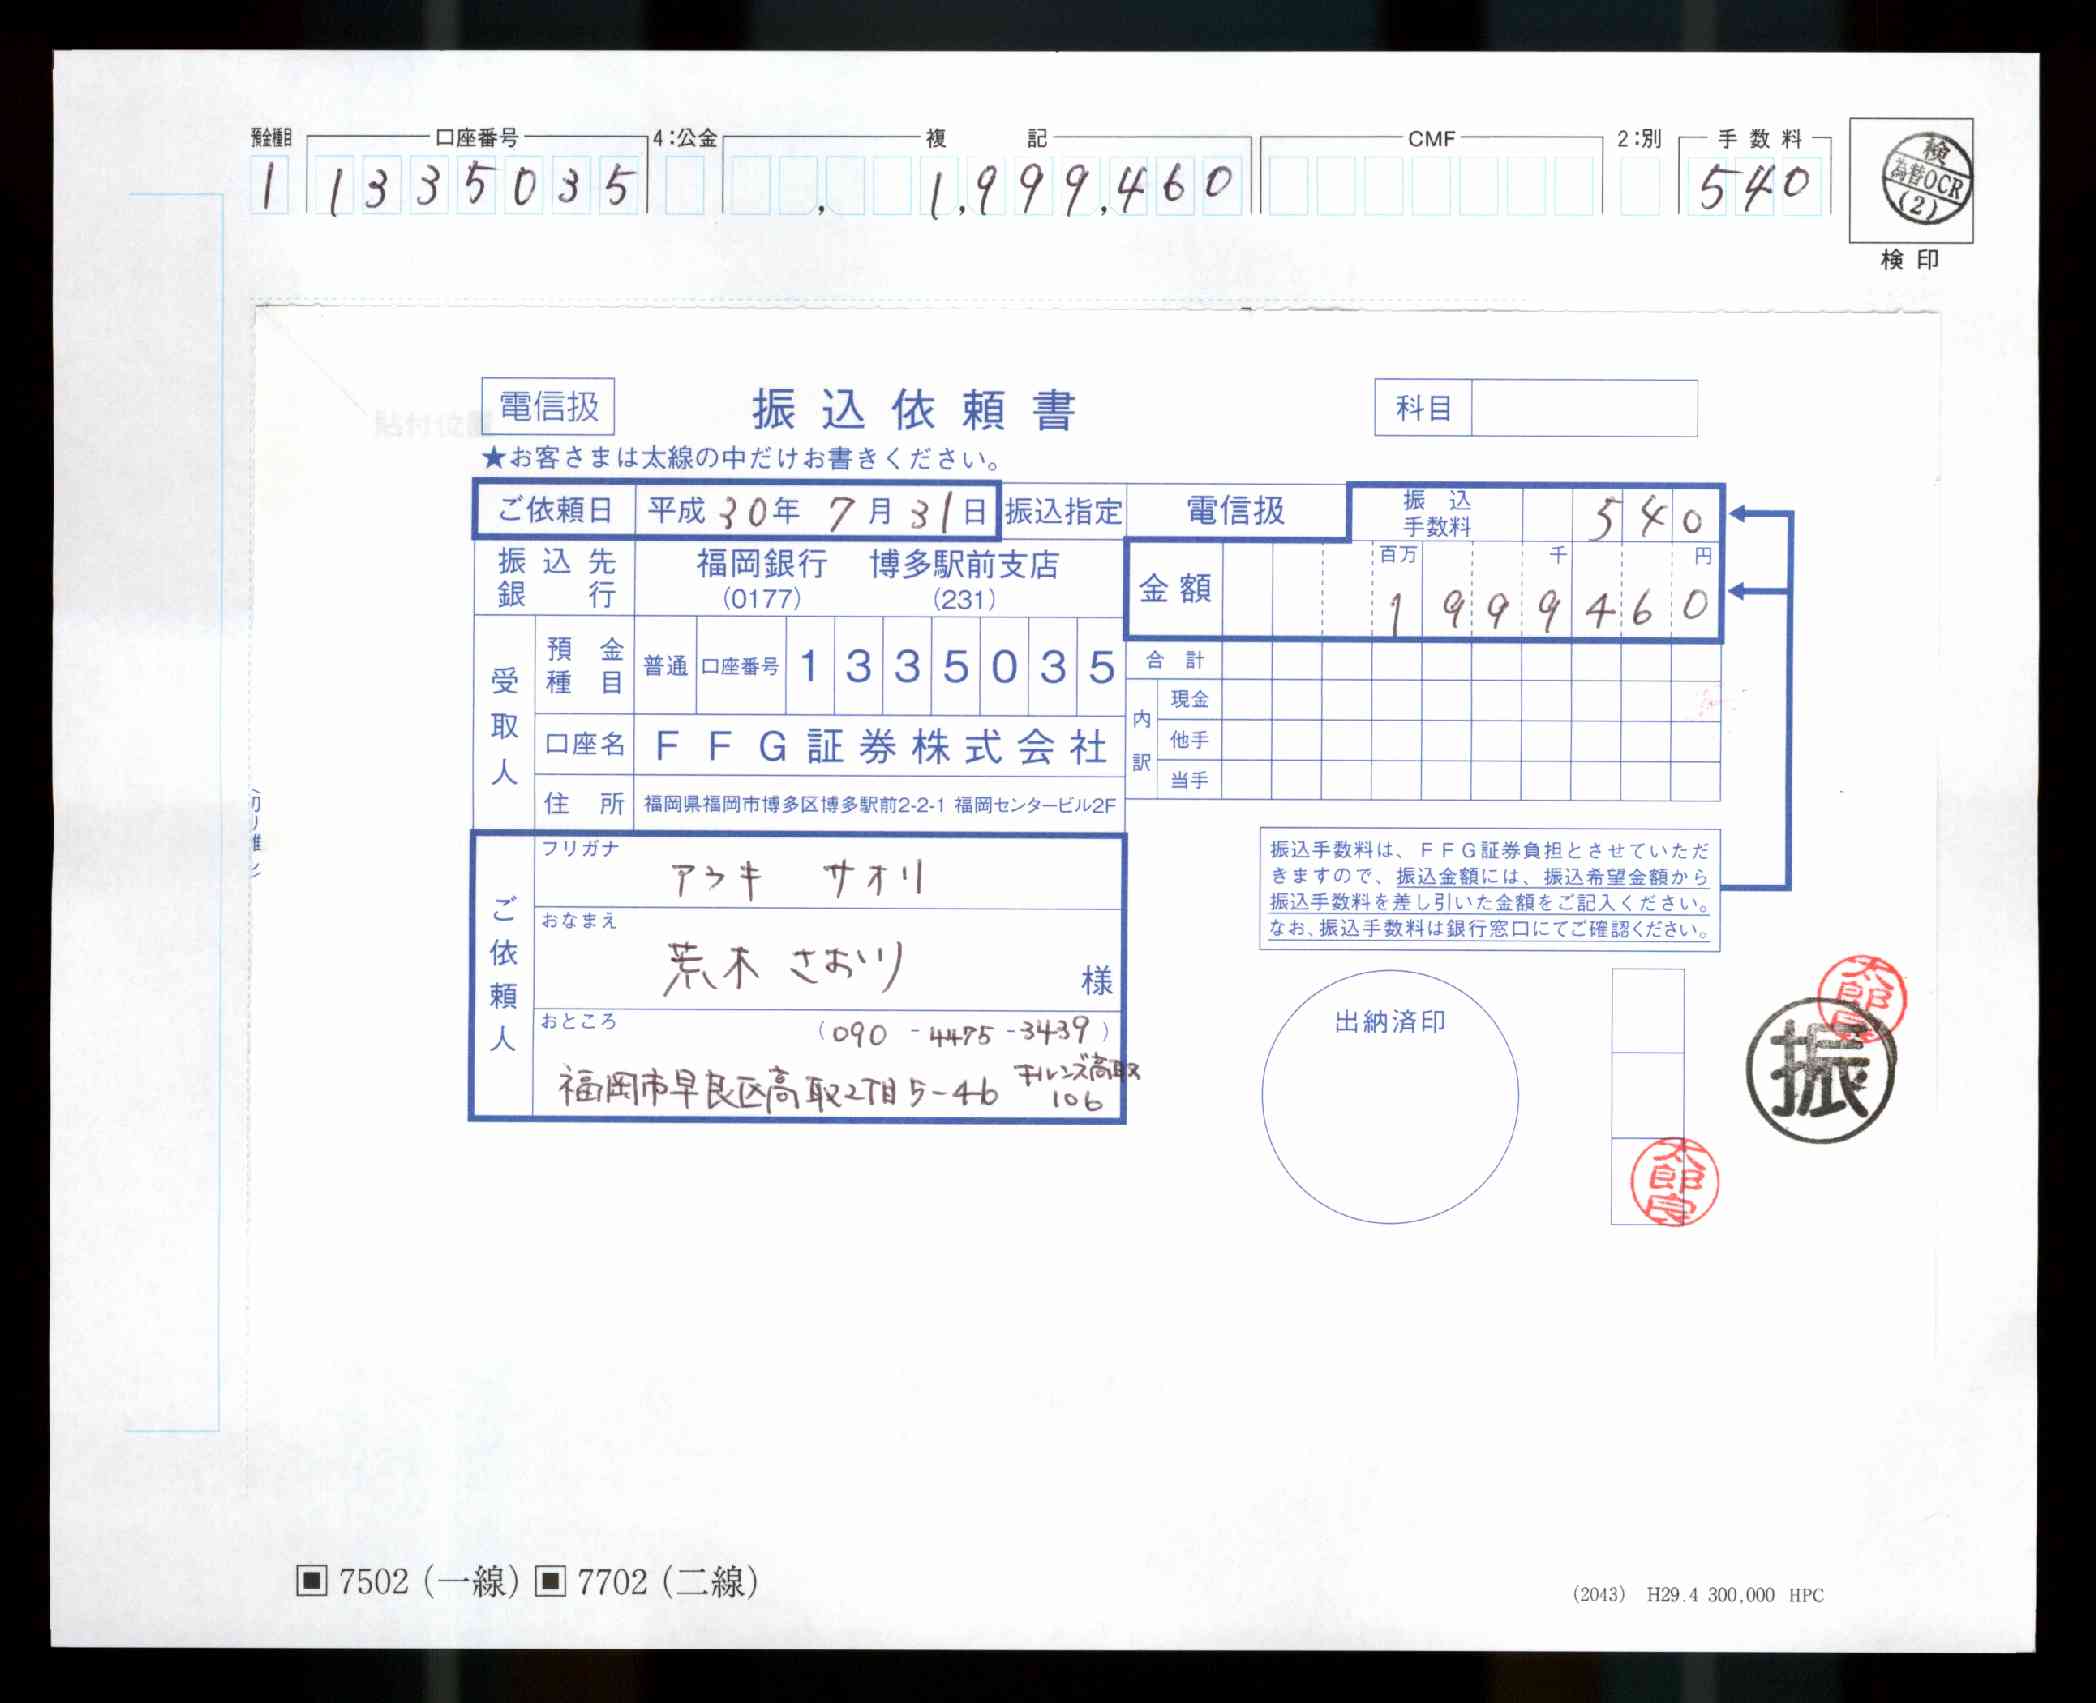 預金種目 口座番号 4:公金 複記 CMF 2:別 手数料
1 1335035 1,999,460 540
検
為替OCR
(2)
検印
貼付位置
電信扱 振込依頼書 科目
★お客さまは太線の中だけお書きください。
ご依頼日 平成30年7月31日 振込指定 電信扱 振込手数料 540
振込先銀行 福岡銀行 博多駅前支店
(0177) (231)
金額 百万 千 円
1999460
受取人 預金種目 普通 口座番号 1335035
合計
内訳 現金
他手
当手
口座名 FFG証券株式会社
住所 福岡県福岡市博多区博多駅前2-2-1 福岡センタービル2F
ご依頼人
フリガナ
アラキ サオリ
おなまえ
荒木 さおり 様
おところ (090-4475-3439)
福岡市早良区高取2丁目5-46 高取
106
振込手数料は、FFG証券負担とさせていただ
きますので、振込金額には、振込希望金額から
振込手数料を差し引いた金額をご記入ください。
なお、振込手数料は銀行窓口にてご確認ください。
出納済印
太郎良
振
太郎良
7502(一線) 7702(二線)
(2043) H29.4 300,000 HPC